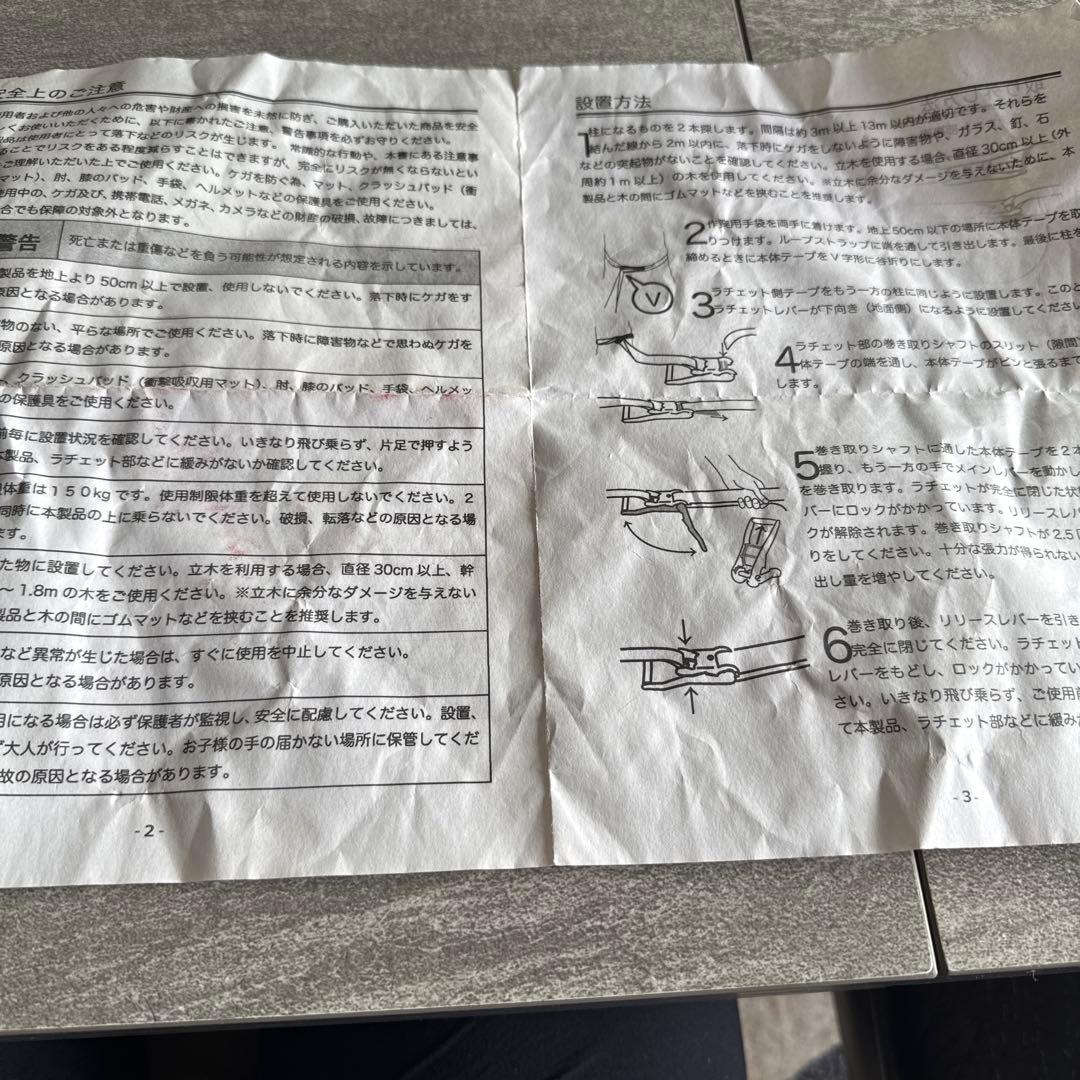 安全上のご注意
用者および他の人々への危害や財産への損害を未然に防ぎ、ご購入いただいた商品を安全
くお使いいただくために、以下に書かれたご注意、警告事項を必ずお守りください。
品は使用者にとって落下などのリスクが生じます。常識的な行動や、本書にある注意事
ることでリスクをある程度減らすことはできますが、完全にリスクが無くならないとい
ご理解いただいた上でご使用ください。ケガを防ぐ為、マット、クラッシュパッド(衝
マット)、肘、膝のパッド、手袋、ヘルメットなどの保護具をご使用ください。
使用中の、ケガ及び、携帯電話、メガネ、カメラなどの財産の破損、故障につきましては、
合でも保障の対象外となります。
警告 死亡または重傷などを負う可能性が想定される内容を示しています。
製品を地上より50cm以上で設置、使用しないでください。落下時にケガをす
原因となる場合があります。
物のない、平らな場所でご使用ください。落下時に障害物などで思わぬケガを
原因となる場合があります。
、クラッシュパッド(衝撃吸収用マット)、肘、膝のパッド、手袋、ヘルメッ
の保護具をご使用ください。
前毎に設置状況を確認してください。いきなり飛び乗らず、片足で押すよう
本製品、ラチェット部などに緩みがないか確認してください。
体重は150kgです。使用制限体重を超えて使用しないでください。2
同時に本製品の上に乗らないでください。破損、転落などの原因となる場
ます。
た物に設置してください。立木を利用する場合、直径30cm以上、幹
~1.8mの木をご使用ください。※立木に余分なダメージを与えない
製品と木の間にゴムマットなどを挟むことを推奨します。
など異常が生じた場合は、すぐに使用を中止してください。
原因となる場合があります。
用になる場合は必ず保護者が監視し、安全に配慮してください。設置、
ず大人が行ってください。お子様の手の届かない場所に保管してくだ
故の原因となる場合があります。
-2-
設置方法
1柱になるものを2本探します。間隔は約3m以上13m以内が適切です。それらを
結んだ線から2m以内に、落下時にケガをしないように障害物や、ガラス、釘、石
などの突起物がないことを確認してください。立木を使用する場合、直径30cm以上(外
周約1m以上)の木を使用してください。※立木に余分なダメージを与えないために、本
製品と木の間にゴムマットなどを挟むことを推奨します。
2作業用手袋を両手に着けます。地上50cm以下の場所に本体テープを取
りつけます。ループストラップに端を通して引き出します。最後に柱を
締めるときに本体テープをV字形に谷折りにします。
V
3ラチェット側テープをもう一方の柱に同じように設置します。このと
ラチェットレバーが下向き(地面側)になるように設置してください
4ラチェット部の巻き取りシャフトのスリット(隙間)
体テープの端を通し、本体テープがピンと張るまで
します。
5巻き取りシャフトに通した本体テープを2本
握り、もう一方の手でメインレバーを動かし
を巻き取ります。ラチェットが完全に閉じた状
バーにロックがかかっています。リリースレバ
クが解除されます。巻き取りシャフトが2.5
りをしてください。十分な張力が得られない
出し量を増やしてください。
6巻き取り後、リリースレバーを引き
完全に閉じてください。ラチェット
レバーをもどし、ロックがかかってい
さい。いきなり飛び乗らず、ご使用前
て本製品、ラチェット部などに緩み
-3-